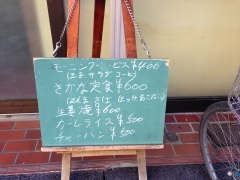 モーニングサービス¥400
(玉子 サラダ コーヒー)
さかな定食¥600
生姜焼¥600
カレーライス 500
チャーハン¥500